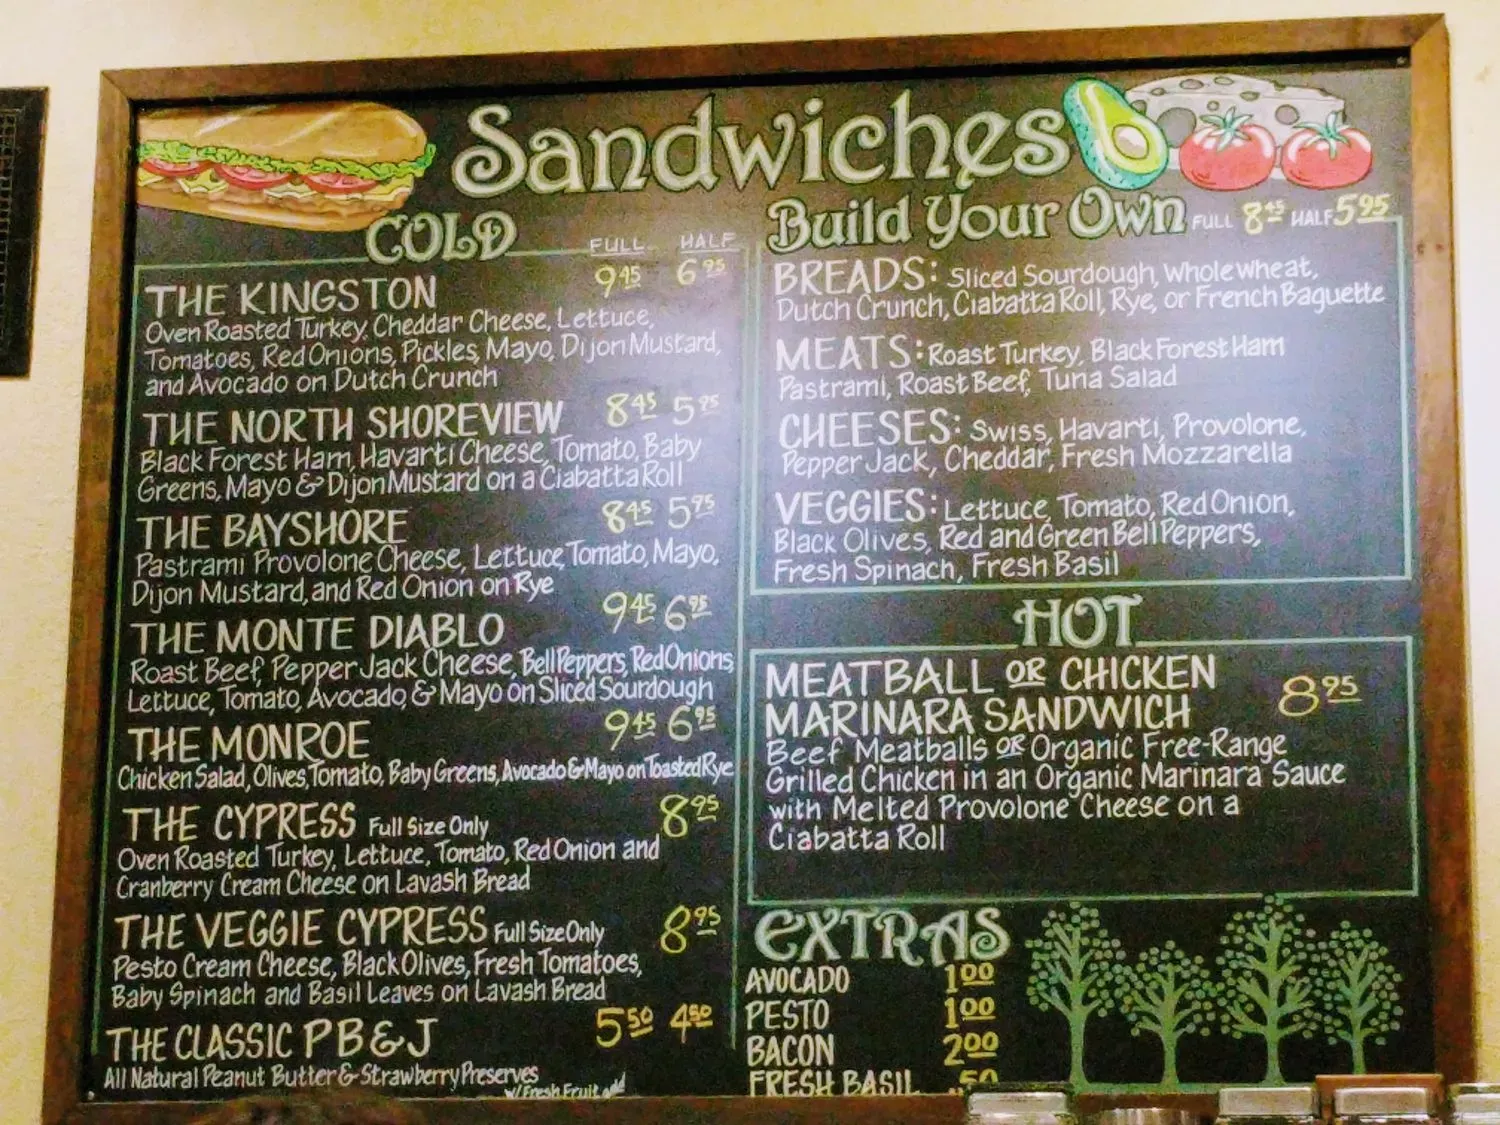 Sandwiches
COLD
FULL HALF
THE KINGSTON 9.45 6.95
Oven Roasted Turkey, Cheddar Cheese, Lettuce,
Tomatoes, Red Onions, Pickles, Mayo, Dijon Mustard,
and Avocado on Dutch Crunch
THE NORTH SHOREVIEW 8.45 5.95
Black Forest Ham, Havarti Cheese, Tomato, Baby
Greens, Mayo & Dijon Mustard on a Ciabatta Roll
THE BAYSHORE 8.45 5.95
Pastrami Provolone Cheese, Lettuce, Tomato, Mayo,
Dijon Mustard, and Red Onion on Rye
THE MONTE DIABLO 9.45 6.95
Roast Beef, Pepper Jack Cheese, Bell Peppers, Red Onions,
Lettuce, Tomato, Avocado, & Mayo on Sliced Sourdough
THE MONROE 9.45 6.95
Chicken Salad, Olives, Tomato, Baby Greens, Avocado & Mayo on Toasted Rye
THE CYPRESS Full Size Only 8.95
Oven Roasted Turkey, Lettuce, Tomato, Red Onion and
Cranberry Cream Cheese on Lavash Bread
THE VEGGIE CYPRESS Full Size Only 8.95
Pesto Cream Cheese, Black Olives, Fresh Tomatoes,
Baby Spinach and Basil Leaves on Lavash Bread
THE CLASSIC PB&J 5.50 4.50
All Natural Peanut Butter & Strawberry Preserves
w/Fresh Fruit add
Build Your Own FULL 8.45 HALF 5.95
BREADS: Sliced Sourdough, Whole Wheat,
Dutch Crunch, Ciabatta Roll, Rye, or French Baguette
MEATS: Roast Turkey, Black Forest Ham
Pastrami, Roast Beef, Tuna Salad
CHEESES: Swiss, Havarti, Provolone,
Pepper Jack, Cheddar, Fresh Mozzarella
VEGGIES: Lettuce, Tomato, Red Onion,
Black Olives, Red and Green Bell Peppers,
Fresh Spinach, Fresh Basil
HOT
MEATBALL OR CHICKEN
MARINARA SANDWICH 8.95
Beef Meatballs OR Organic Free-Range
Grilled Chicken in an Organic Marinara Sauce
with Melted Provolone Cheese on a
Ciabatta Roll
EXTRAS
AVOCADO 1.00
PESTO 1.00
BACON 2.00
FRESH BASIL .50